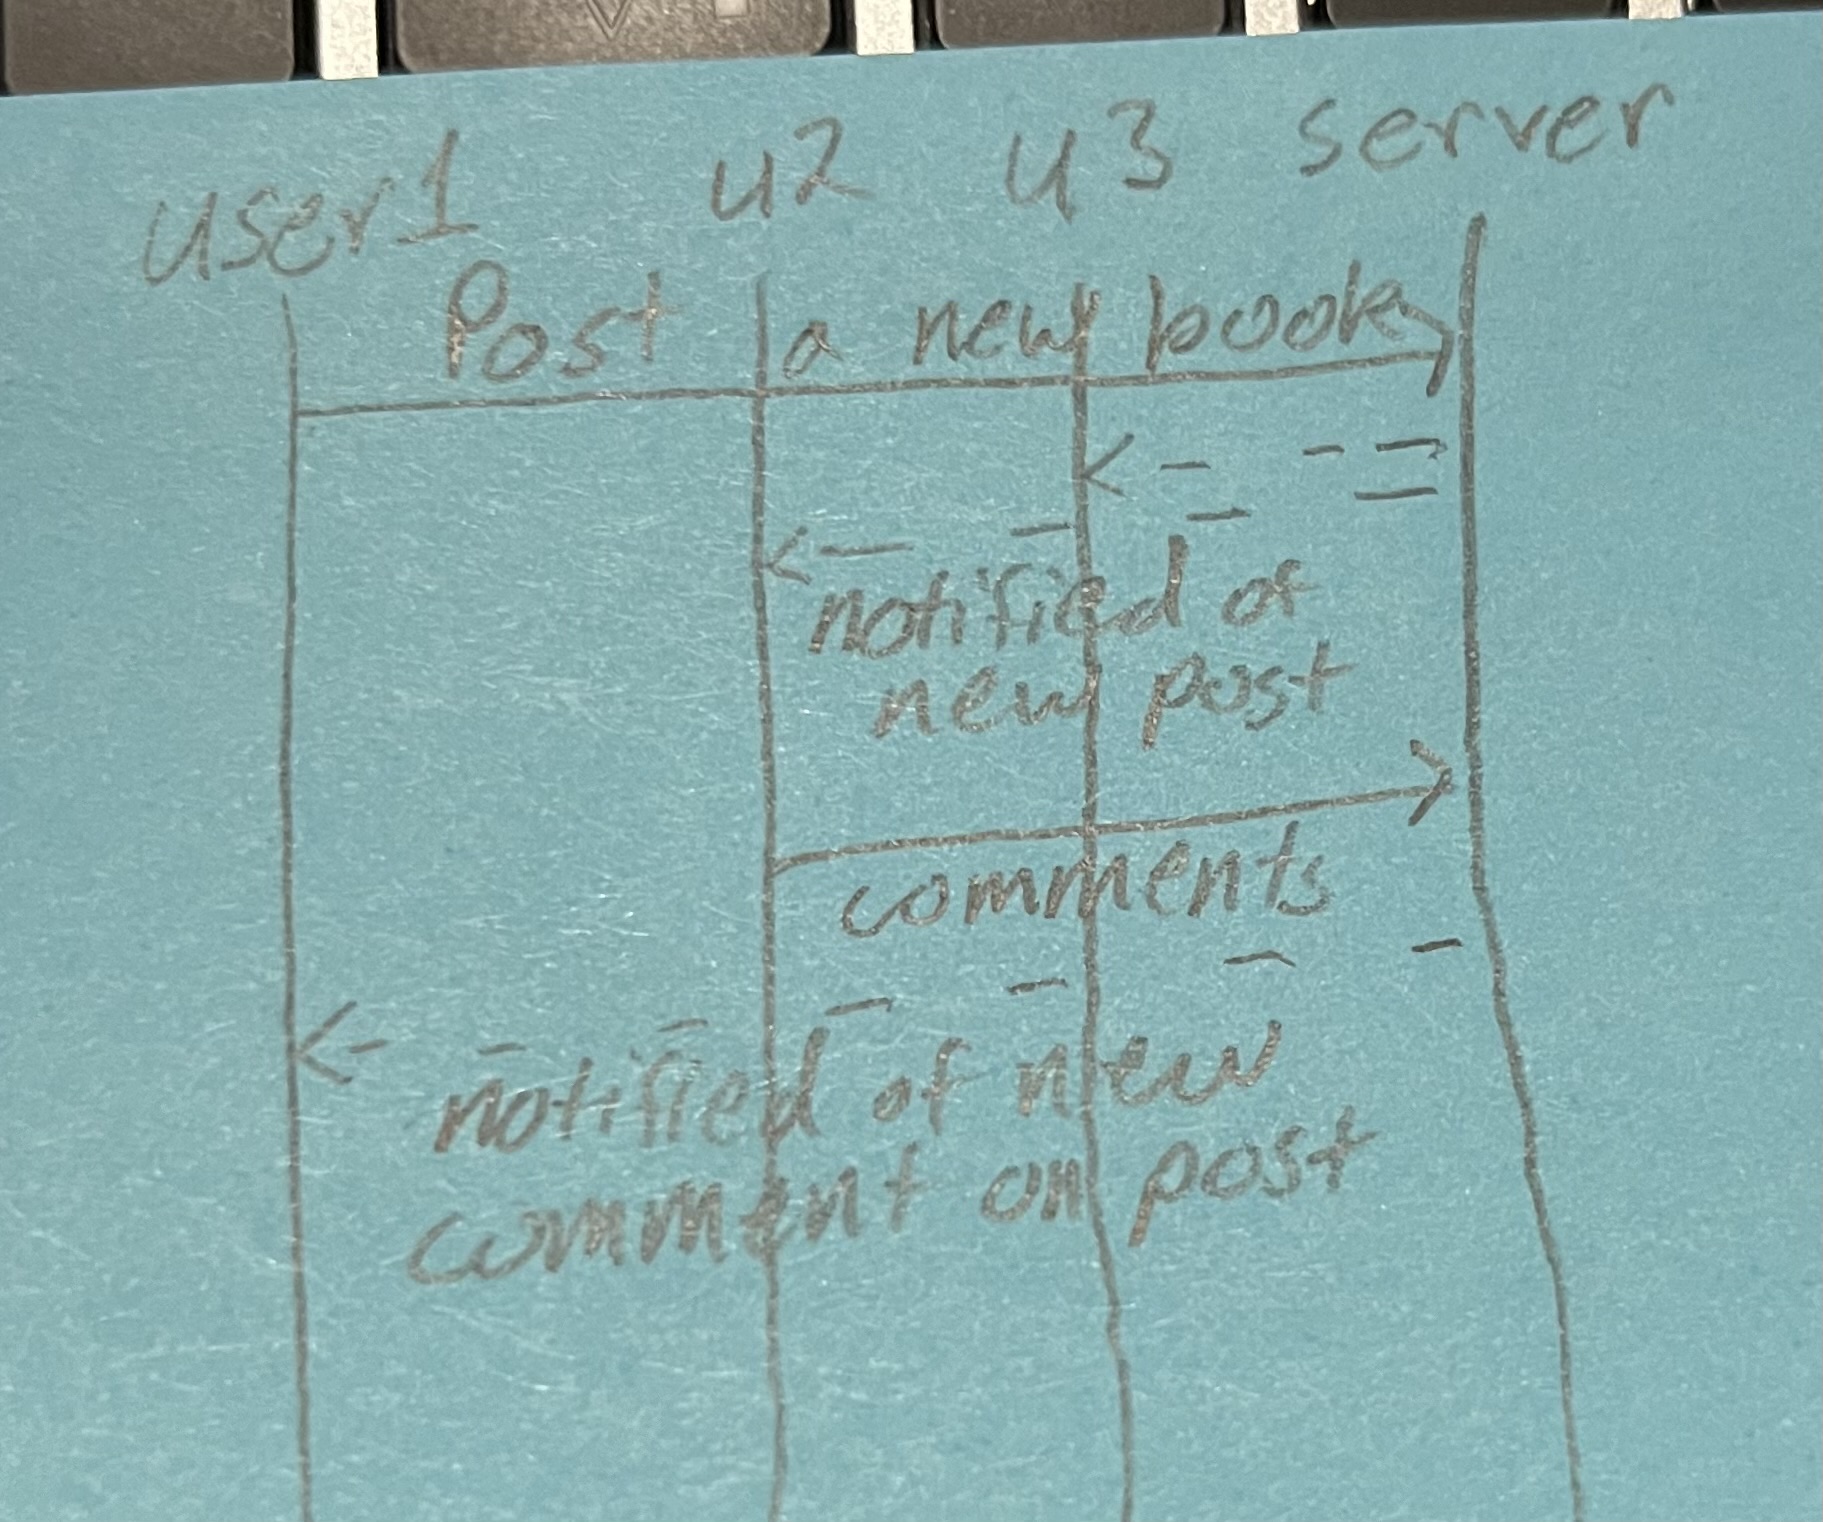 user1 u2 u3 server
Post a new book
notified of
new post
comments
notified of new
comment on post